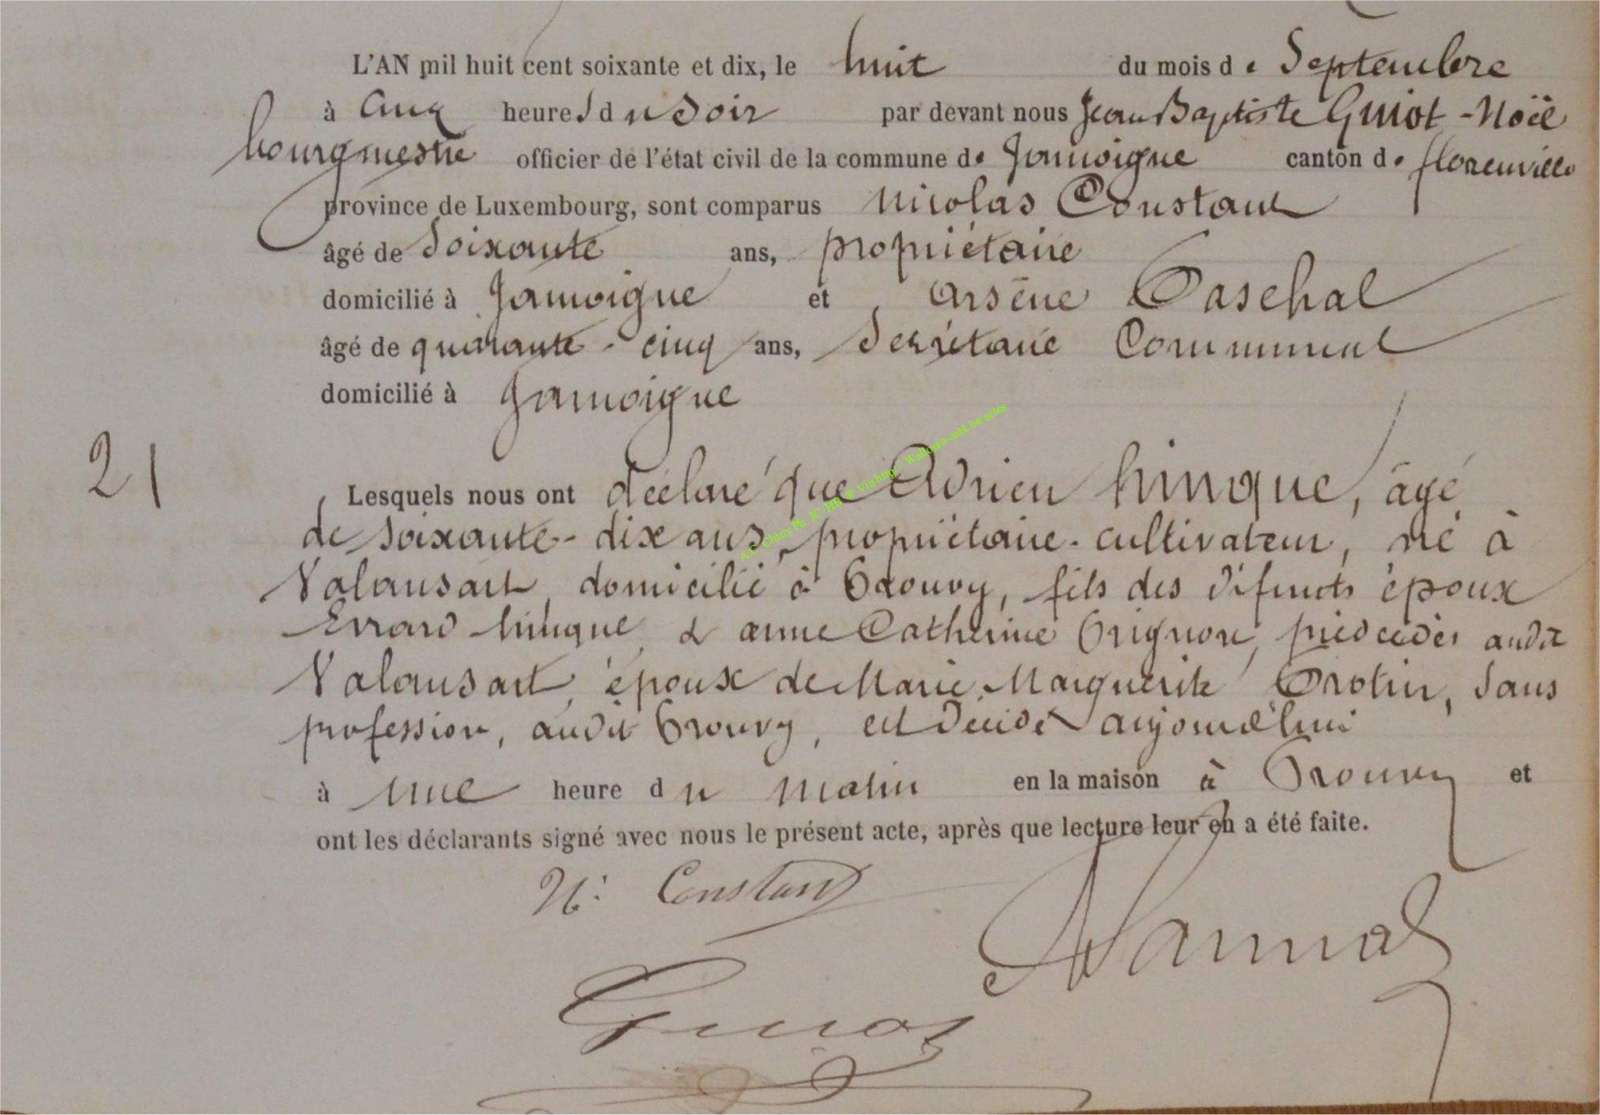 L'AN mil huit cent soixante et dix, le huit du mois de Septembre
à cinq heures du Soir par devant nous Jean Baptiste Guiot-Noël
bourgmestre officier de l'état civil de la commune de Jamoigne canton de florenville
province de Luxembourg, sont comparus Nicolas Constant
âgé de Soixante ans, propriétaire
domicilié à Jamoigne et Arsène Paschal
âgé de quarante-cinq ans, Secrétaire Communal
domicilié à Jamoigne
21
Lesquels nous ont déclaré que Adrien hinque, âgé
de soixante-dix ans, propriétaire-cultivateur, né à
Valansart, domicilié à Prouvy, fils des défunts époux
Errard hinque & anne Catherine Grignon, prédécédés audit
Valansart, époux de Marie Marguerite Protin, Sans
profession, audit Prouvy, est décédé aujourd'hui
à une heure du matin en la maison à Prouvy et
ont les déclarants signé avec nous le présent acte, après que lecture leur en a été faite.
N: Constant
Guiot